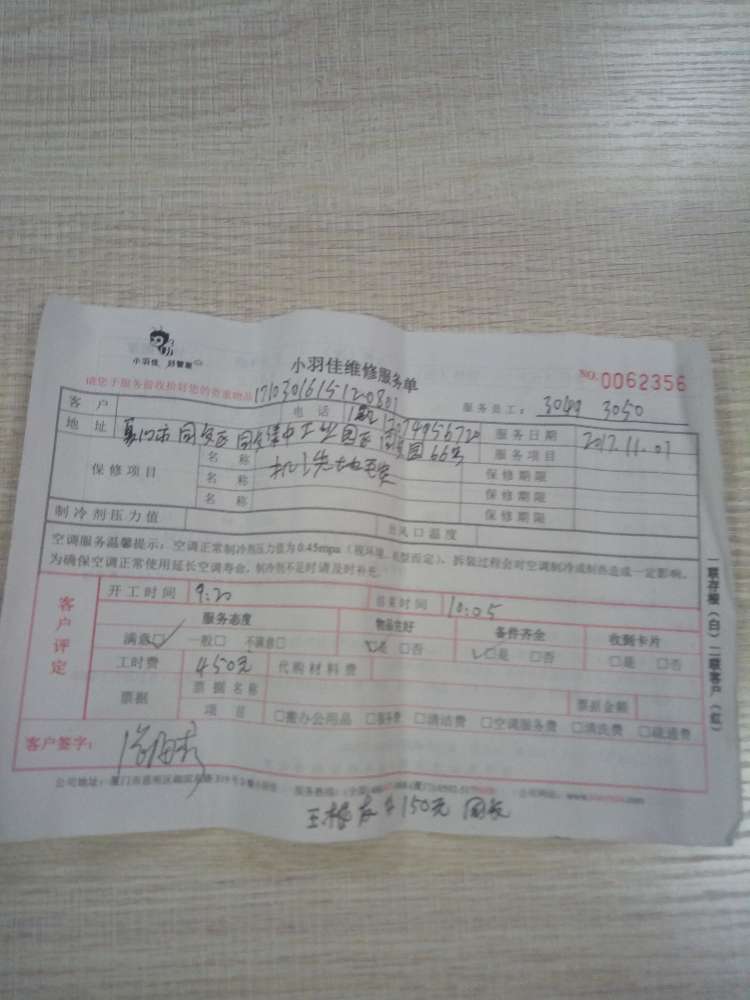 小羽佳
小羽佳维修服务单
NO.0062356
请您于服务前收拾好您的贵重物品
17103016151-2-0801
服务员工: 3049 3050
客户 电话
服务日期 2017.11.01
地址 厦门市同安区同安集中工业园区同集园66号
服务项目
保修项目 名称 保修期限
名称 保修期限
名称 保修期限
制冷剂压力值 出风口温度
空调服务温馨提示:空调正常制冷剂压力值为0.45mpa(视环境、机型而定)、拆装过程会对空调制冷或制热造成一定影响。
为确保空调正常使用延长空调寿命,制冷剂不足时请及时补充。
客户评定
开工时间 9:20 结束时间 10:05
服务态度 物品完好 备件齐全 收到卡片
满意□ 一般□ 不满意□ □是 □否 □是 □否 □是 □否
工时费 450元 代购材料费
票据 票据名称 票据金额
项目 □办公用品 □服务费 □清洁费 □空调服务费 □清洗费 □疏通费
客户签字:
公司地址:厦门市思明区
150元
一联存根(白)二联客户(红)